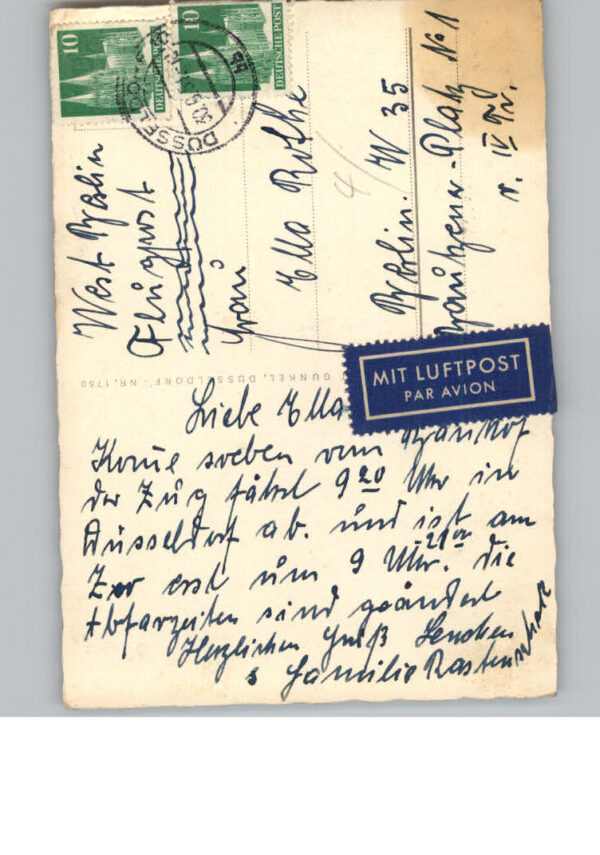 10
DEUTSCHE POST
10
DEUTSCHE POST
DÜSSELDORF
West Berlin
Flugpost
Frau
Ella Rothe
Berlin. W 35
Platz No 1
v. IV Tr.
MIT LUFTPOST
PAR AVION
GUNKEL, DÜSSELDORF · NR. 1750
Liebe Ella
Kome soeben vom Bahnhof
der Zug fährt 9 20 Uhr in
Düsseldorf ab. und ist am
Zoo erst um 9 Uhr. 21 00 die
Abfarzeiten sind geändert
Herzlichen Gruß Lenchen
Familie